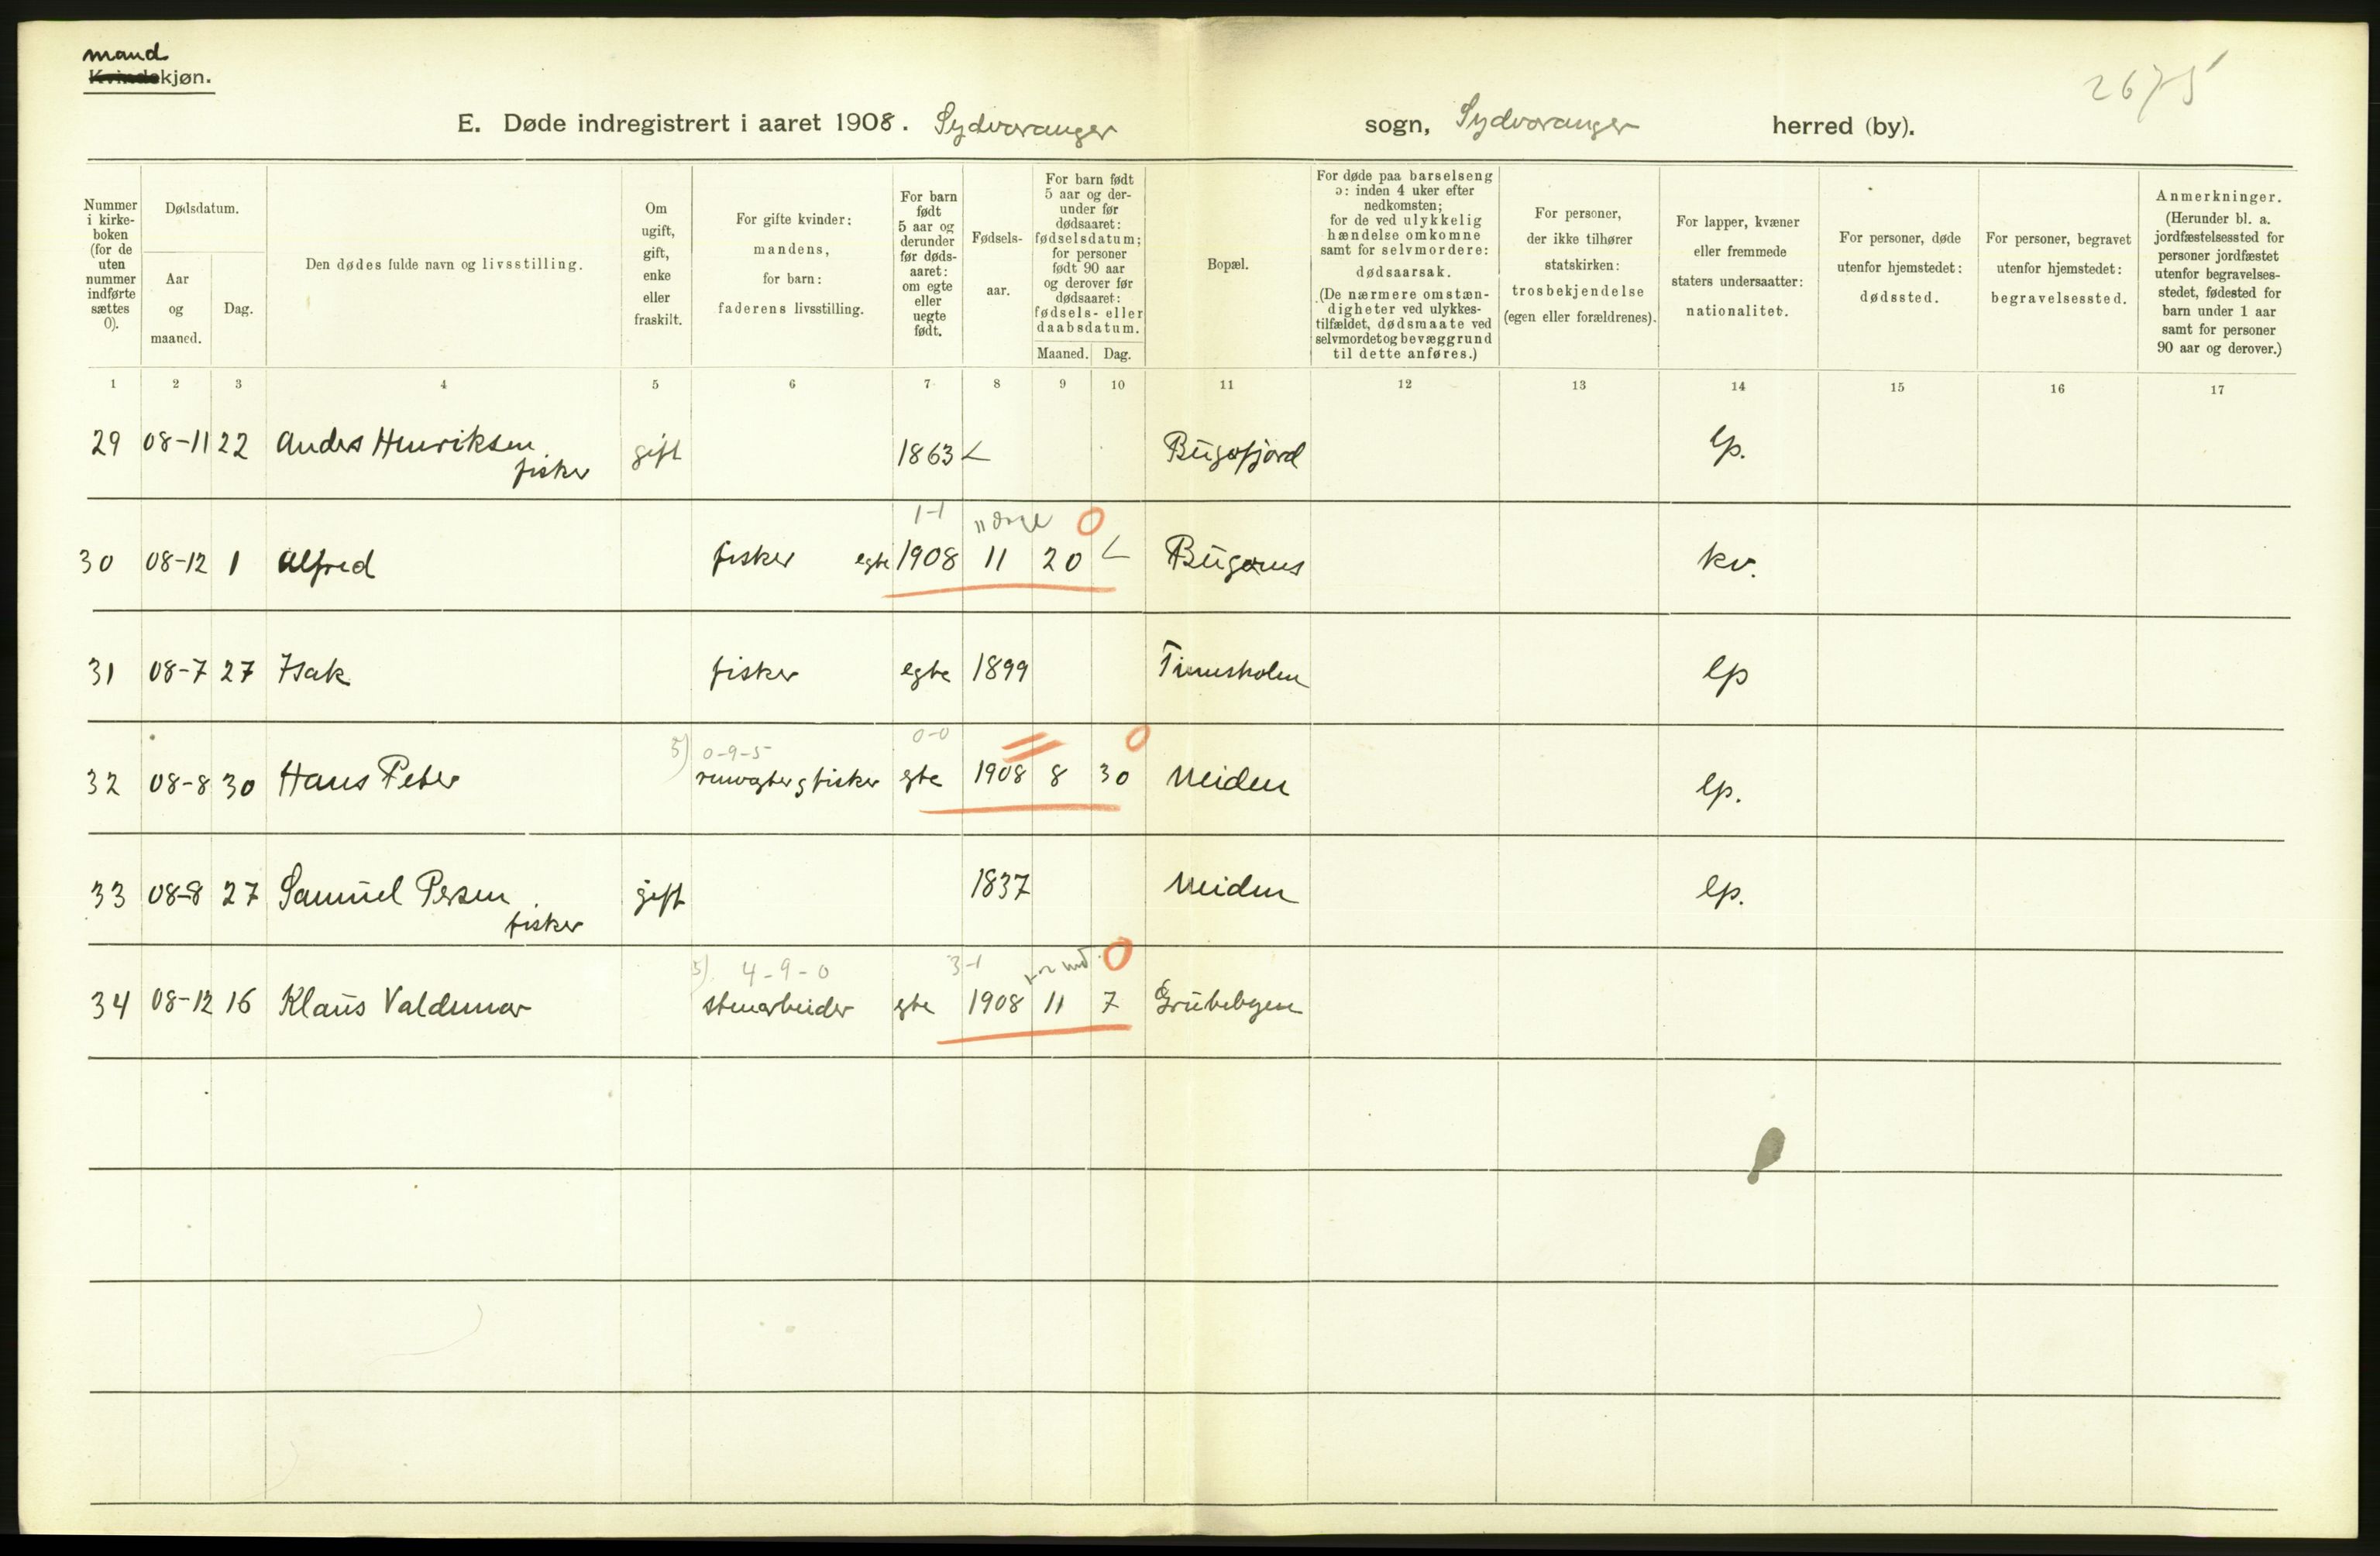 mand
Kvindekjøn.
2675
E. Døde indregistrert i aaret 1908. Sydvaranger sogn, Sydvaranger herred (by).
Nummer i kirke-boken (for de uten nummer indførte sættes 0).
Dødsdatum.
Aar og maaned.
Dag.
Den dødes fulde navn og livsstilling.
Om ugift, gift, enke eller fraskilt.
For gifte kvinder: mandens, for barn: faderens livsstilling.
For barn født 5 aar og derunder før døds-aaret: om egte eller uegte født.
Fødsels-aar.
For barn født 5 aar og der-under før dødsaaret: fødselsdatum; for personer født 90 aar og derover før dødsaaret: fødsels- eller daabsdatum.
Maaned. Dag.
Bopæl.
For døde paa barselseng ɔ: inden 4 uker efter nedkomsten; for de ved ulykkelig hændelse omkomne samt for selvmordere: dødsaarsak. (De nærmere omstæn-digheter ved ulykkes-tilfældet, dødsmaate ved selvmordet og bevæggrund til dette anføres.)
For personer, der ikke tilhører statskirken: trosbekjendelse (egen eller forældrenes).
For lapper, kvæner eller fremmede staters undersaatter: nationalitet.
For personer, døde utenfor hjemstedet: dødssted.
For personer, begravet utenfor hjemstedet: begravelsessted.
Anmerkninger. (Herunder bl. a. jordfæstelsessted for personer jordfæstet utenfor begravelses-stedet, fødested for barn under 1 aar samt for personer 90 aar og derover.)
1 2 3 4 5 6 7 8 9 10 11 12 13 14 15 16 17
29 08-11 22 Anders Henriksen gift 1863 Bugøfjord lp.
fisker
1-1 11 dage 0
30 08-12 1 Alfred fisker egte 1908 11 20 Bugønes kv.
31 08-7 27 Isak fisker egte 1899 lp
5) 0-9-5 0-0 0
32 08-8 30 Hans Peter fisker egte 1908 8 30 Neiden lp.
33 08-8 27 Samuel Persen gift 1837 Neiden lp.
fisker
5) 4-9-0 3-1 0
34 08-12 16 Klaus Valdemar stenarbeider egte 1908 11 7 Grubebyen